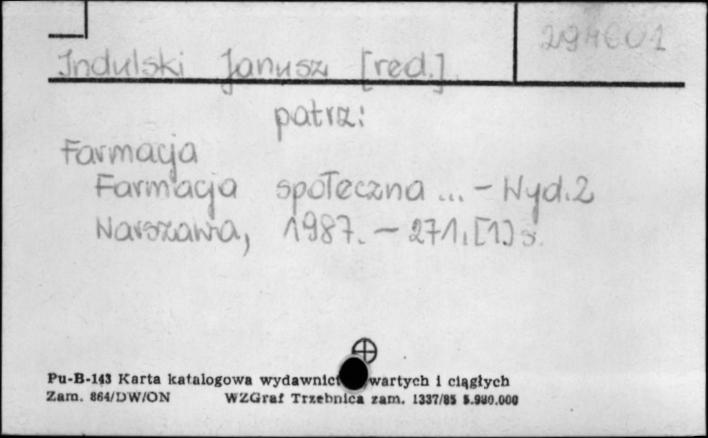 294601
Indulski Janusz [red.]
patrz:
Farmacja
Farmacja społeczna ... - Wyd. 2
Warszawa, 1987. - 271, [1] s.
Pu-B-143 Karta katalogowa wydawnict wartych i ciągłych
Zam. 864/DW/ON WZGraf Trzebnica zam. 1337/85 5.980.000